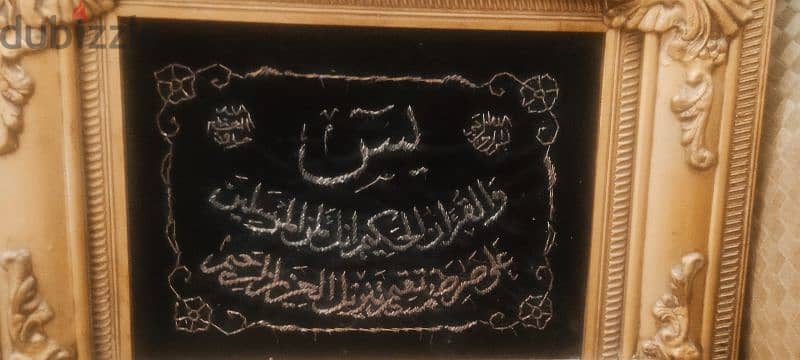 dubizzle
يسٓ
والقرآن الحكيم إنك لمن المرسلين
على صرط مستقيم تنزيل العزيز الرحيم